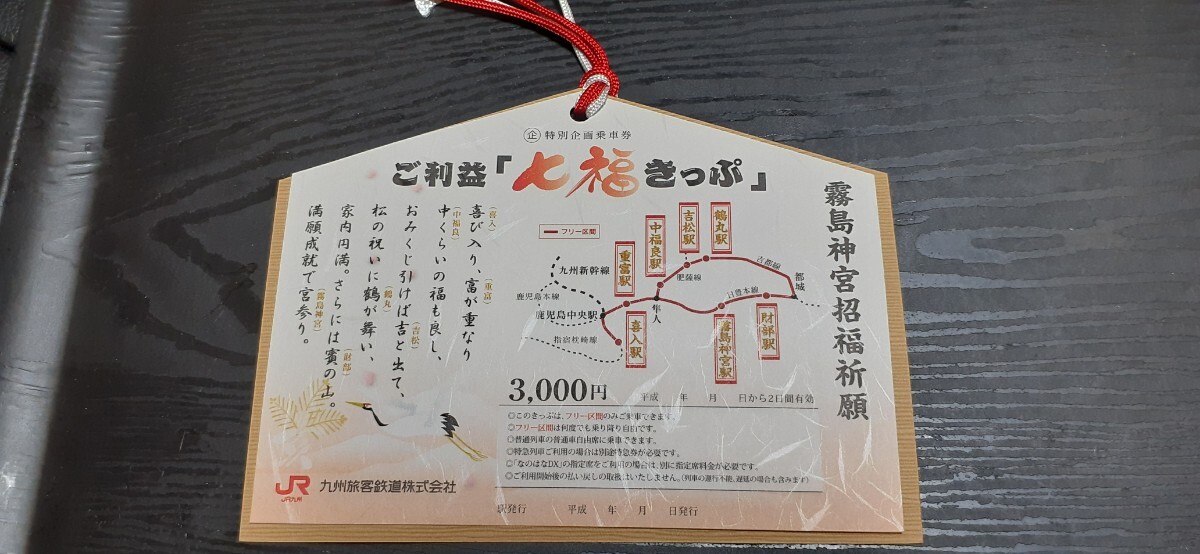 企 特別企画乗車券
ご利益「七福きっぷ」
霧島神宮招福祈願
喜び入り、富が重なり
(喜入)
(重富)
中くらいの福も良し、
(中福良)
おみくじ引けば吉と出て、
(吉松)
松の祝いに鶴が舞い、
(鶴丸)
家内円満。さらには賓の山。
(財部)
満願成就で宮参り。
(霧島神宮)
フリー区間
九州新幹線
鹿児島本線
鹿児島中央駅
指宿枕崎線
喜入駅
重富駅
隼人
中福良駅
肥薩線
吉松駅
鶴丸駅
吉都線
都城
日豊本線
霧島神宮駅
財部駅
3,000円
平成 年 月 日から2日間有効
◎このきっぷは、フリー区間のみご乗車できます。
◎フリー区間は何度でも乗り降り自由です。
◎普通列車の普通車自由席に乗車できます。
◎特急列車ご利用の場合は別途特急券が必要です。
◎「なのはなDX」の指定席をご利用の場合は、別に指定席料金が必要です。
◎ご利用開始後の払い戻しの取扱はいたしません。(列車の運行不能、遅延の場合も含みます)
JR
JR九州
九州旅客鉄道株式会社
駅発行 平成 年 月 日発行